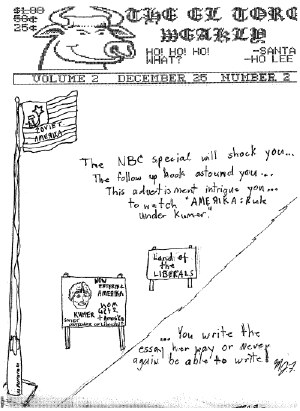 $1.00
50¢
25¢
THE EL TORO
WEAKLY
HO! HO! HO! -SANTA
WHAT? -HO LEE
VOLUME 2 DECEMBER 25 NUMBER 2
SOVIET
AMERIKA
The NBC special will shock you...
The follow up book astound you...
This advertisment intrigue you...
to watch "AMERIKA: Rule
under Kumer."
Land of
the
LIBERALS
NOW
ENTERING
AMERIKA
KUMER
... You write the
essay her way or never
again be able to write!